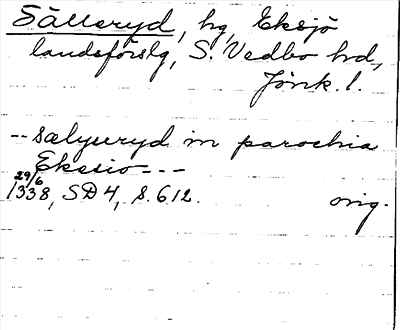 Sälleryd, hg, Eksjö
landsförslg, S. Vedbo hd,
Jönk. l.
-- sælyuryd in parochia
Eksio - - -
29/6
1338, SD 4, s. 612. orig.